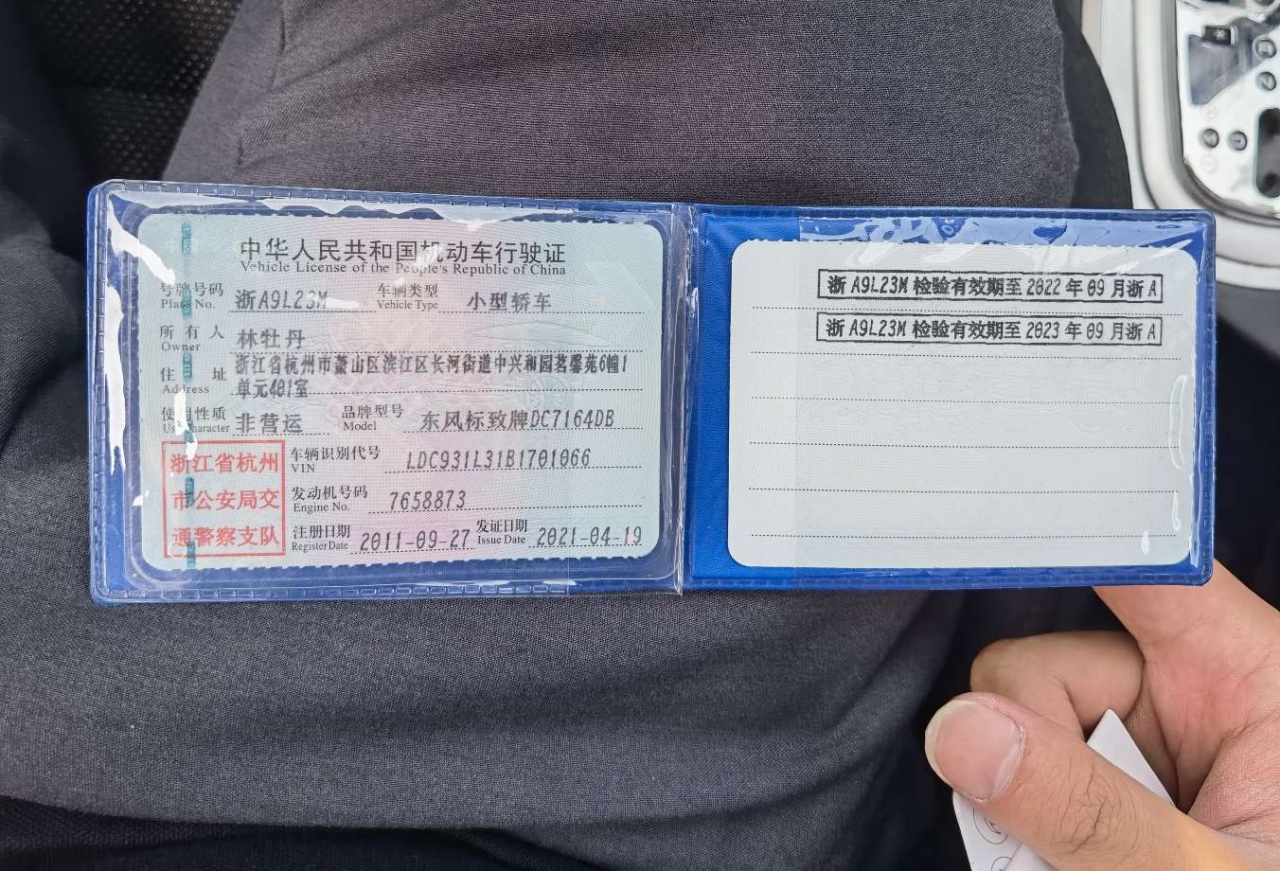 中华人民共和国机动车行驶证
Vehicle License of the People's Republic of China
号牌号码 浙A9L23M 车辆类型 小型轿车
Plate No. Vehicle Type
所有人 林牡丹
Owner
住址 浙江省杭州市萧山区滨江区长河街道中兴和园茗馨苑6幢1
Address 单元401室
使用性质 非营运 品牌型号 东风标致牌DC7164DB
Use Character Model
浙江省杭州 车辆识别代号 LDC931L31B1701066
VIN
市公安局交 发动机号码 7658873
Engine No.
通警察支队 注册日期 2011-09-27 发证日期 2021-04-19
Register Date Issue Date
浙A9L23M检验有效期至2022年09月浙A
浙A9L23M检验有效期至2023年09月浙A